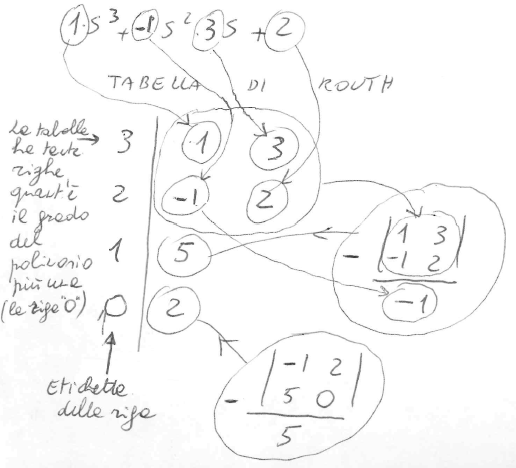 1·s³ + -1 s² 3s + 2
TABELLA DI ROUTH
La tabella
ha tante
righe
quant'è
il grado
del
polinomio
più una
(la riga "0")
3 1 3
2 -1 2
1 5
0 2
- | 1 3 |
| -1 2 |
-1
- | -1 2 |
| 5 0 |
5
Etichetta
della riga